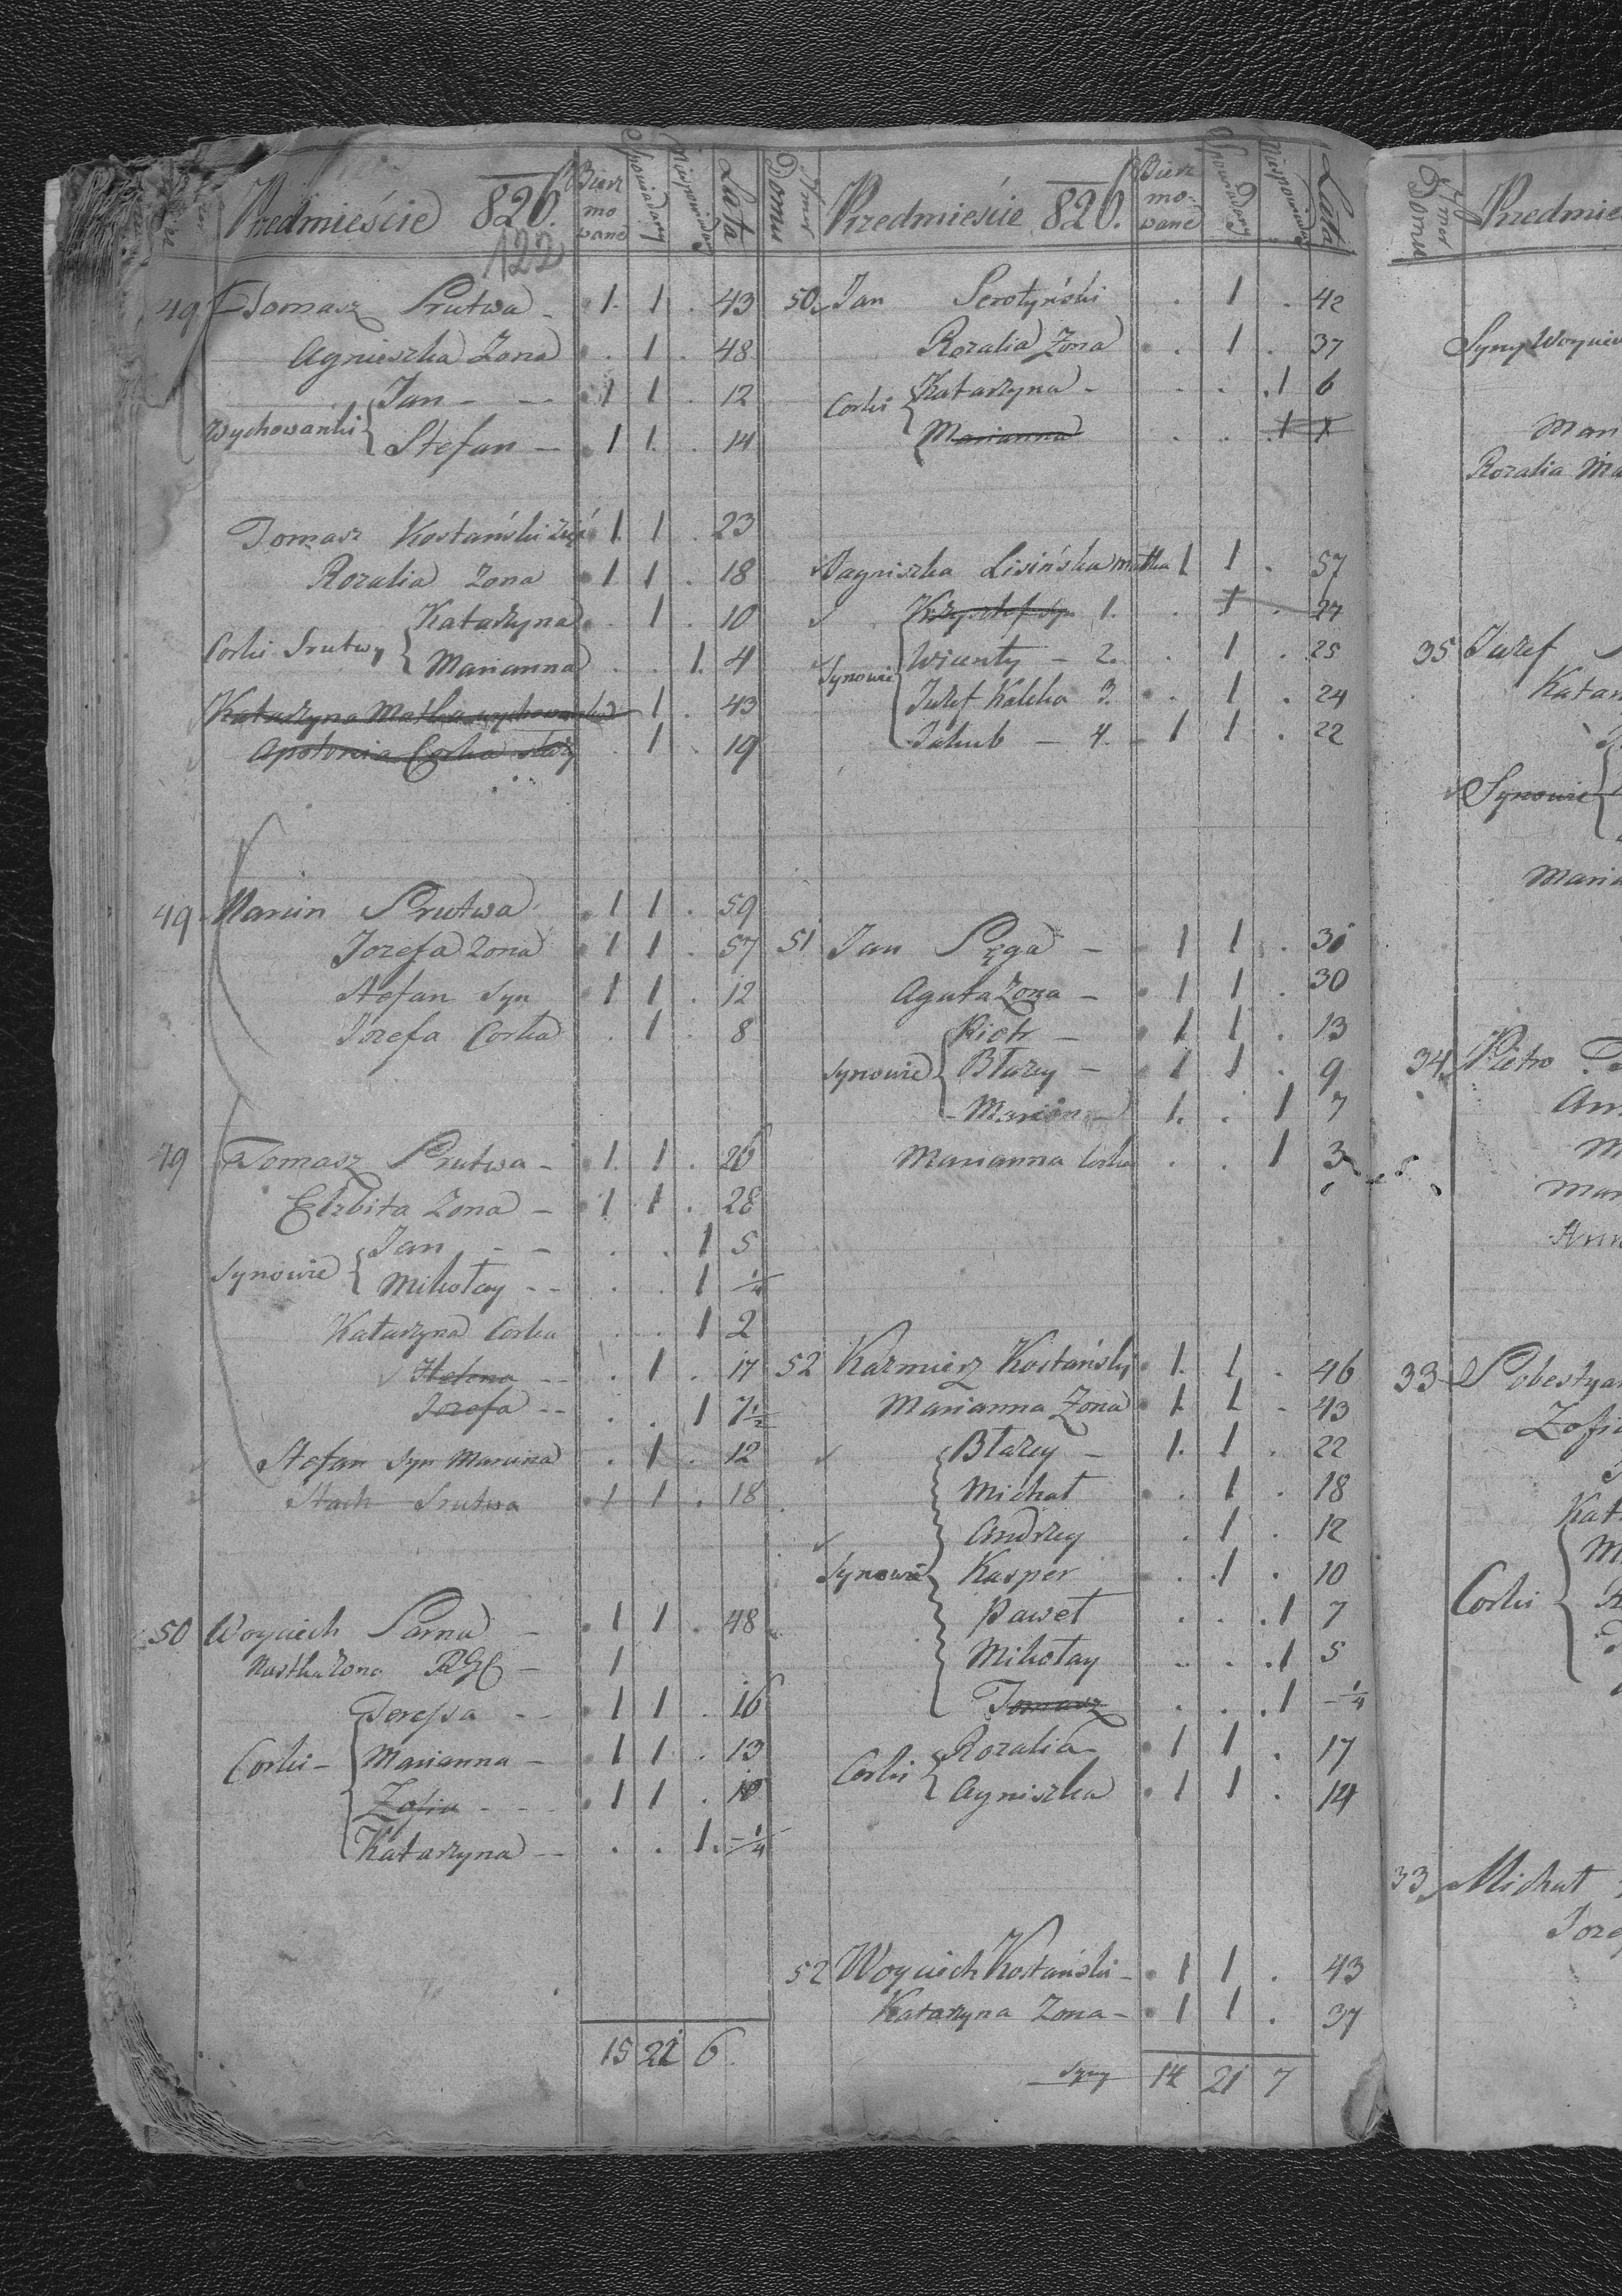 Przedmieście 826. Bierz mo wane Spowiadaiący Lata
122
49 Tomasz Srutwa - 1. 1 . 43
Agnieszka Zona . 1 . 48
Wychowanki { Jan - - 1 1 . 12
Stefan - 1 1. . 14
Tomasz Kostański zięć 1 1 . 23
Rozalia Zona 1. 1 . 18
Corki Srutwy { Katarzyna . 1 . 10
Marianna . . 1. 4
Katarzyna Matka wychowanków 1 . 43
Apolonia Corka . 1 . 19
49 Marcin Srutwa 1 1 . 59
Jozefa Zona 1 1 . 57
Stefan Syn 1 1 . 12
Jozefa Corka . 1 . 8
49 Tomasz Srutwa - 1. 1 . 26
Elzbita Zona - 1 1 . 28
Synowie { Jan - - . . 1 5
Mikołay - - . . 1 1/4
Katarzyna Corka . . 1 2
Helena - - . 1 . 17
Jozefa - - . . 1 7 1/2
Stefan Syn Marcina . 1 . 12
Stach Srutwa 1 1 . 18
50 Woyciech Sarna - 1 1 . 48
Nastka Zona RGC - 1
Corki - { Teressa - - 1 1 . 16
Marianna - 1 1 . 13
Zofia - - - 1 1 . 10
Katarzyna - - . . 1. - 1/4
15 21 6.
Domu Numer Przedmieście 826. Bierz mo. wane Spowiadaiący Lata
50 Jan Serotyński . 1 . 42
Rozalia Zona . 1 . 37
Corki { Katarzyna - . . 1 6
Marianna . . 1 1
Jagniszka Lisińska matka 1 1 . 57
Synowie { Krzysztof Syn 1. . 1 . 27
Wicenty - 2. . 1 . 25
Juzef Kaleka 3. . 1 . 24
Jakub - 4. - 1 1 . 22
51 Jan Sęga - 1 1 . 31
Agata Zona - 1 1 . 30
Synowie { Piotr - 1. 1 . 13
Błazey - 1 1 . 9
Marcin - 1. . 1 7
Marianna Corka . . 1 3
52 Kazmierz Kostański 1. 1 . 46
Marianna Zona 1. 1 - 43
Synowie { Błazey - 1. 1 . 22
Michał . 1 . 18
Andrzey . 1 . 12
Kasper . 1 . 10
Paweł . . 1 7
Mikołay . . 1 5
Tomasz . . 1 - 1/4
Corki { Rozalia - 1 1 . 17
Agniszka 1 1 . 14
52 Woyciech Kostański - 1 1 . 43
Katarzyna Zona - 1 1 . 37
Syny 14 21 7
Numer Domu Przedmie
Syny Woyciec
Man
Rozalia Ma
35 Juzef
Katar
Synowie {
Maria
34 Pietro
An
M
Mar
Ann
33 Sobestyan
Zofia
Corki { Kat
M
33 Michał
Joze